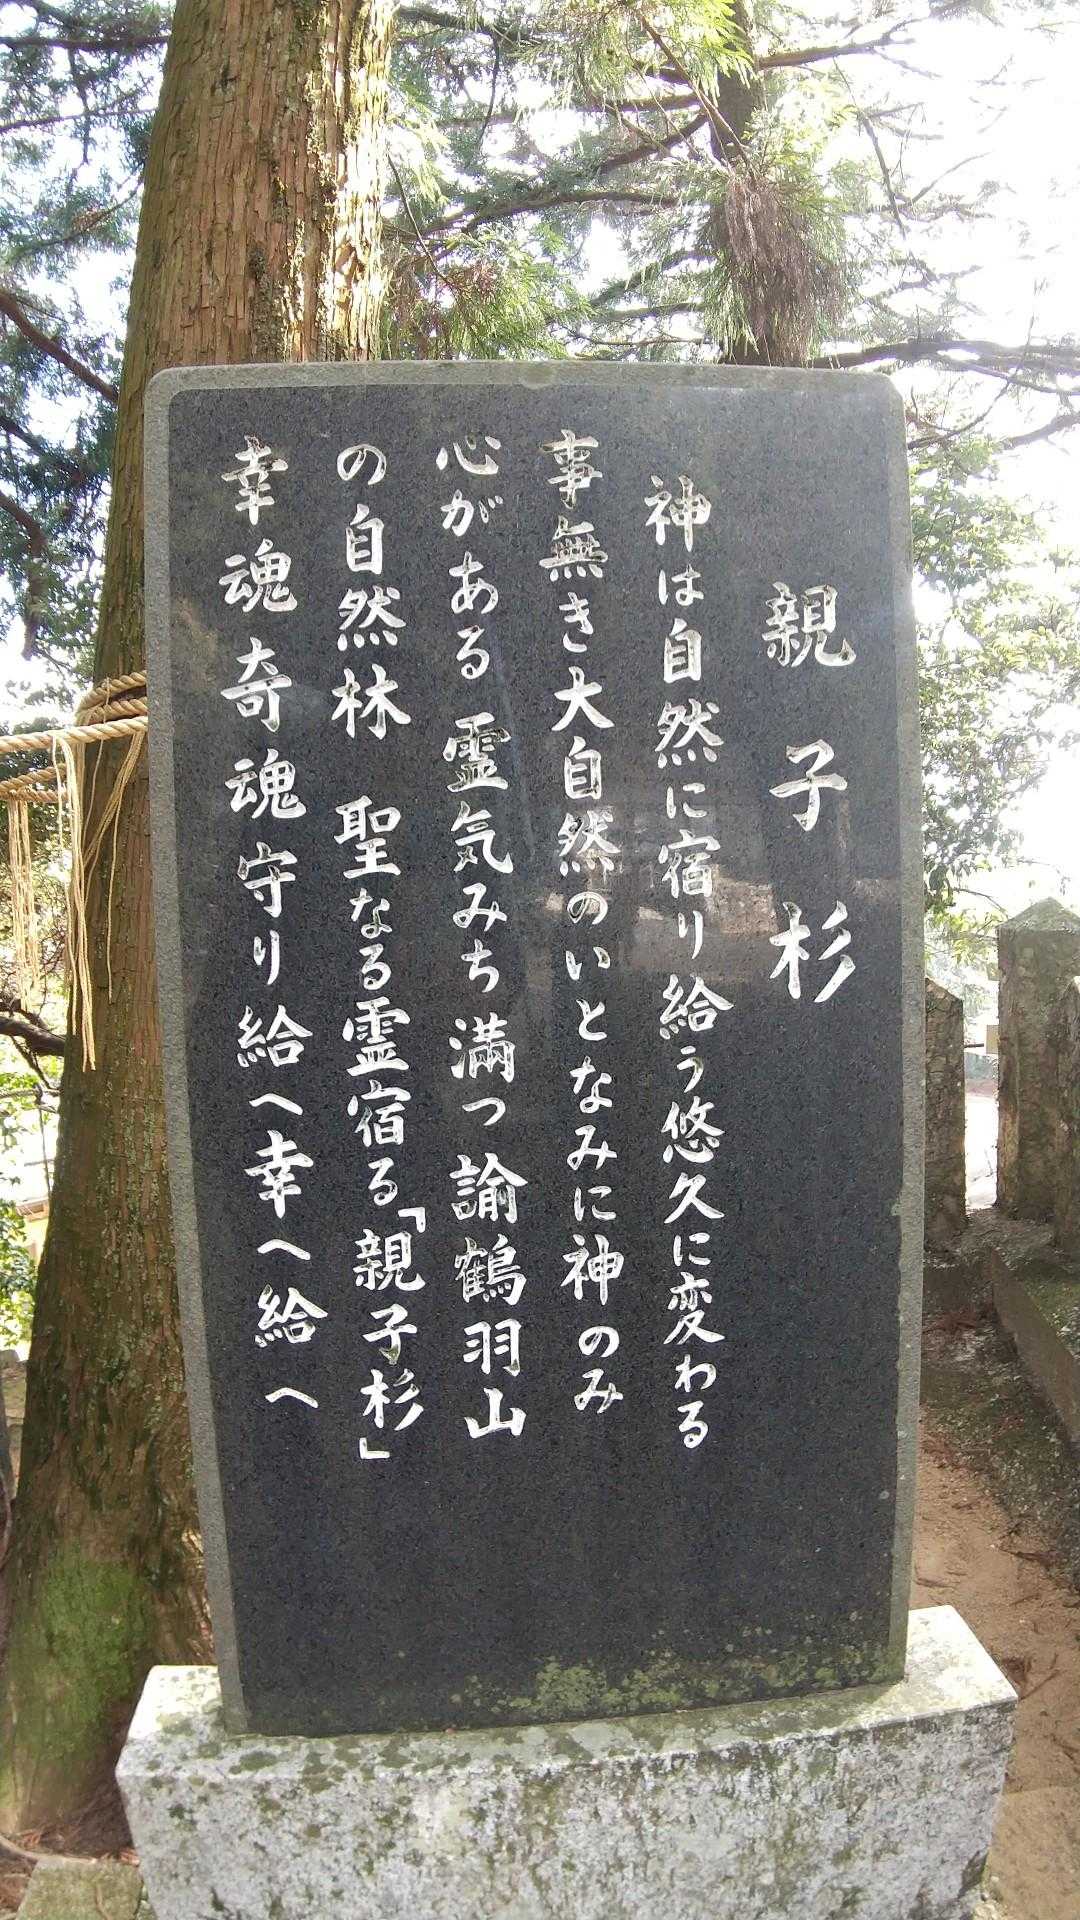 親子杉
神は自然に宿り給う悠久に変わる
事無き大自然のいとなみに神のみ
心がある 霊気みち満つ諭鶴羽山
の自然林 聖なる霊宿る「親子杉」
幸魂奇魂守り給へ幸へ給へ